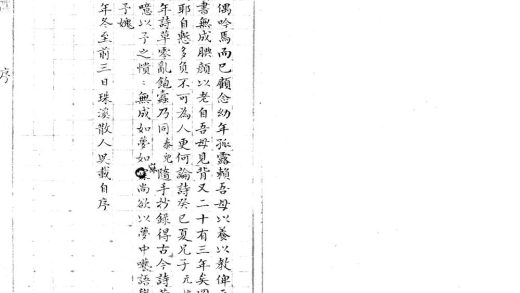 偶吟焉而已顧念幼年孤露賴吾母以養以教俾
書無成腆顏以老自吾母見背又二十有三年矣
耶自慙多负不可為人更何論詩癸巳夏兄子元
年詩草零亂飽蠹乃同泰兒隨手抄錄得古今詩
噫以予之憒憒無成如夢如尚欲以夢中囈語
子媿
年冬至前三日珠溪散人吳載自序
序